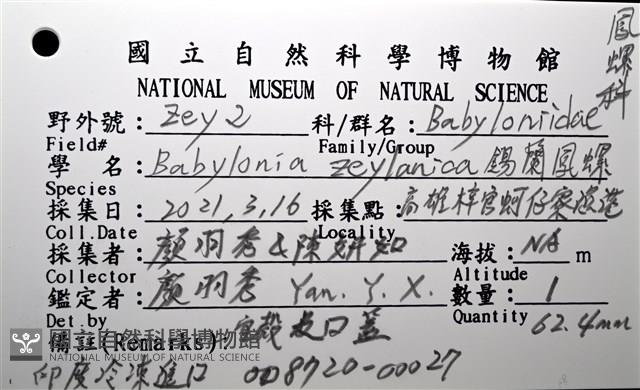 國立自然科學博物館
鳳螺科
NATIONAL MUSEUM OF NATURAL SCIENCE
野外號: Zey 2 科/群名: Babyloniidae
Field# Family/Group
學 名: Babylonia zeylanica 錫蘭鳳螺
Species
採集日: 2021,3,16 採集點: 高雄梓官蚵仔寮漁港
Coll.Date Locality
採集者: 顏羽秀&陳妍如 海拔: NA m
Collector Altitude
鑑定者: 顏羽秀 Yan. Y. X. 數量: 1
Det.by Quantity 62.4mm
備註(Remarks): 空殼及口蓋
國立自然科學博物館
NATIONAL MUSEUM OF NATURAL SCIENCE
印度冷凍進口 008720-00027